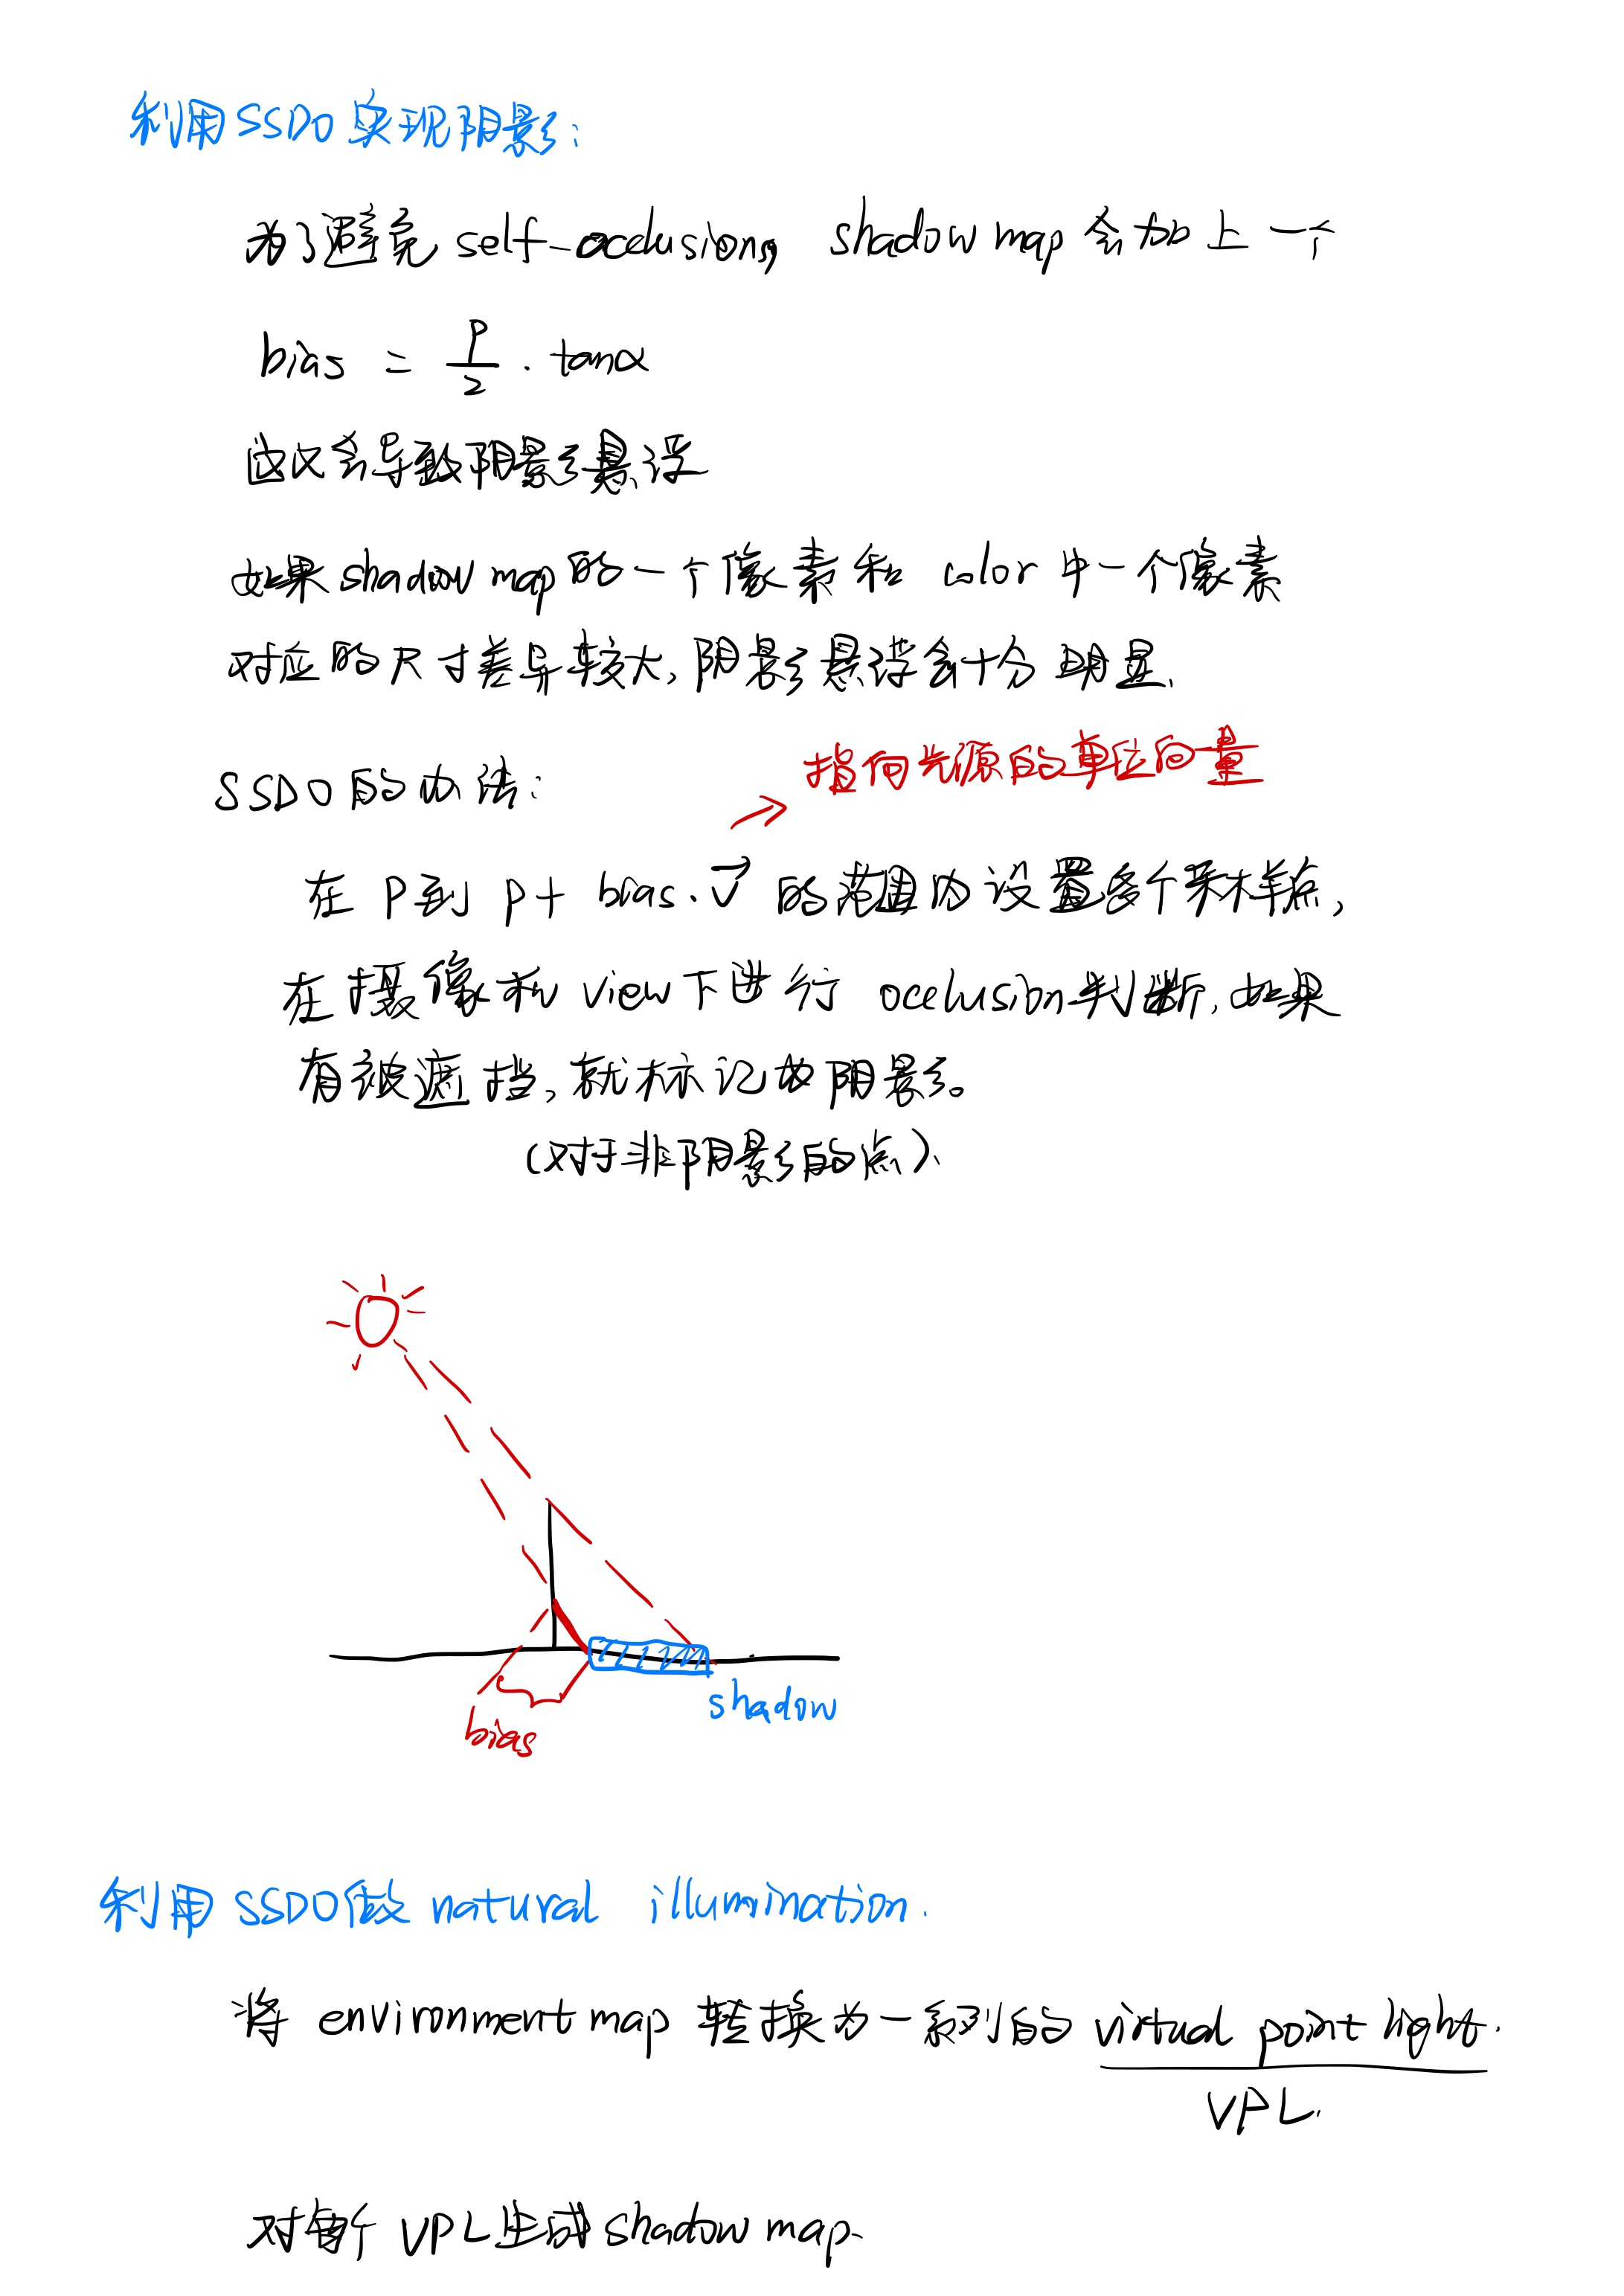 利用SSDO实现阴影:
为了避免 self-occlusion, shadow map 会加上一个
bias = P/2 · tanα
这又会导致阴影悬浮
如果 shadow map 的一个像素和 color 中一个像素
对应的尺寸差异较大,阴影悬浮会十分明显.
指向光源的单位向量
SSDO的办法:
在 P到 P+ bias·v⃗ 的范围内设置多个采样点,
在摄像机 view下进行 occlusion判断,如果
有被遮挡,就标记为阴影。
(对于非阴影的点).
shadow
bias
利用 SSDO做 natural illumination.
将 environment map 转换为一系列的 virtual point light.
VPL.
对每个 VPL生成shadow map.